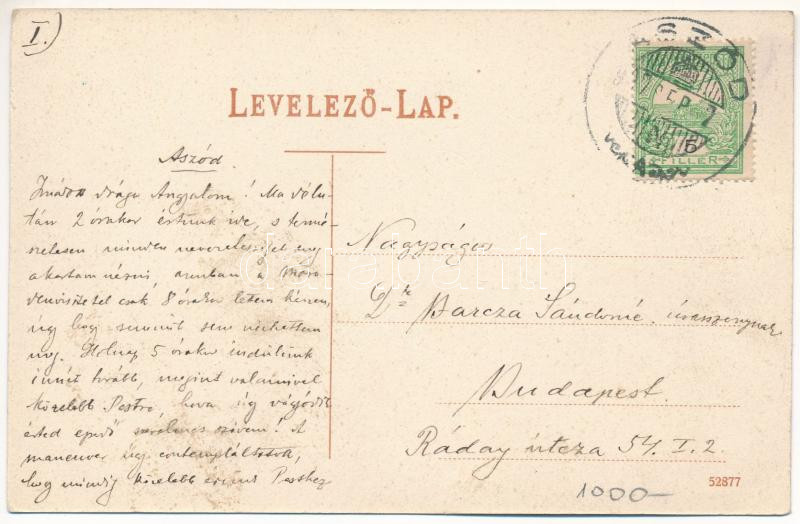 I.)
LEVELEZŐ-LAP.
ASZÓD
SEP
6
FILLÉR
Aszód.
drága Angyalom! Ma délu-
tán 2 órakor értünk ide, s termé-
szetesen minden nevezetességet meg
akartam nézni, azonban a
csak 8 órakor
úg hogy semmit sem nézhettem
meg. Holnap 5 órakor indulunk
innét tovább, megint valamivel
közelebb Pesthez, hova úg vágódik
érted epedő szerelmes szívem! A
maneuver úg contempláltatott,
hog mindig közelebb Pesthez
Nagyságos
Dr Barcza Sándorné úrasszonynak
Budapest.
Ráday útcza 54. I. 2.
52877
1000-
darabanth